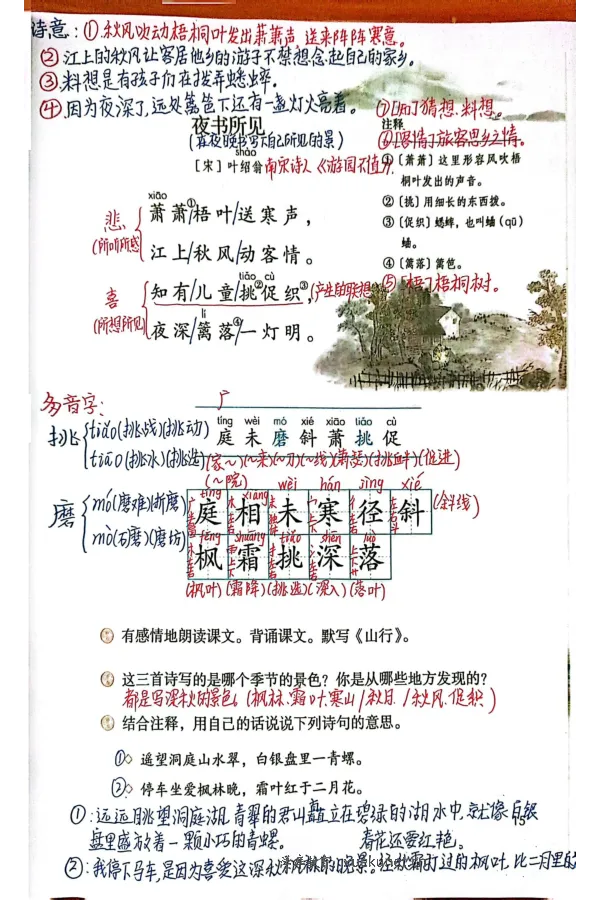 诗意:①.秋风吹动梧桐叶发出萧萧声 送来阵阵寒意。
②江上的秋风让客居他乡的游子不禁想念起自己的家乡。
③.料想是有孩子们在拨弄蟋蟀。
④.因为夜深了,远处篱笆下还有一盏灯火亮着。
⑦[知]猜想.料想。
夜书所见
注释
(在夜晚书写下自己所见的景)
⑥[客情]旅客思乡之情。
shào
[宋]叶绍翁 南宋诗人《游园不值》
①〔萧萧〕这里形容风吹梧
桐叶发出的声音。
②〔挑〕用细长的东西拨。
③〔促织〕蟋蟀,也叫蛐(qū)
蛐。
④〔篱落〕篱笆。
⑤[梧]梧桐树。
xiāo
悲 萧萧①/梧叶/送寒声,
(所听所感) 江上/秋风/动客情。
tiǎo cù
喜 知有/儿童/挑②促织③,(产生的联想)
(所想所见) lí
夜深/篱落④/一灯明。
多音字:
挑 tiǎo(挑战)(挑动)
tiāo(挑水)(挑选)
tíng wèi mò xié xiāo tiǎo cù
庭 未 磨 斜 萧 挑 促
(家~)(~来)(~刀)(~线)(萧瑟)(挑衅)(促进)
(~院)
磨 mó(磨难)(折磨)
mò(石磨)(磨坊)
tíng xiàng wèi hán jìng xié
庭 相 未 寒 径 斜 (斜线)
fēng shuāng tiǎo shēn luò
枫 霜 挑 深 落
(枫叶)(霜降)(挑选)(深入)(落叶)
有感情地朗读课文。背诵课文。默写《山行》。
这三首诗写的是哪个季节的景色?你是从哪些地方发现的?
都是写深秋的景色。(枫林.霜叶.寒山/秋月/秋风.促织)
结合注释,用自己的话说说下列诗句的意思。
①◇ 遥望洞庭山水翠,白银盘里一青螺。
②◇ 停车坐爱枫林晚,霜叶红于二月花。
①:远远眺望洞庭湖,青翠的君山矗立在碧绿的湖水中,就像白银
盘里盛放着一颗小巧的青螺。 春花还要红艳。
②:我停下马车,是因为喜爱这深秋枫林的晚景。经秋霜打过的枫叶,比二月里的